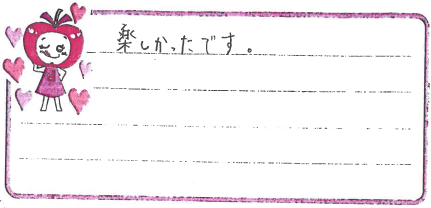 楽しかったです。